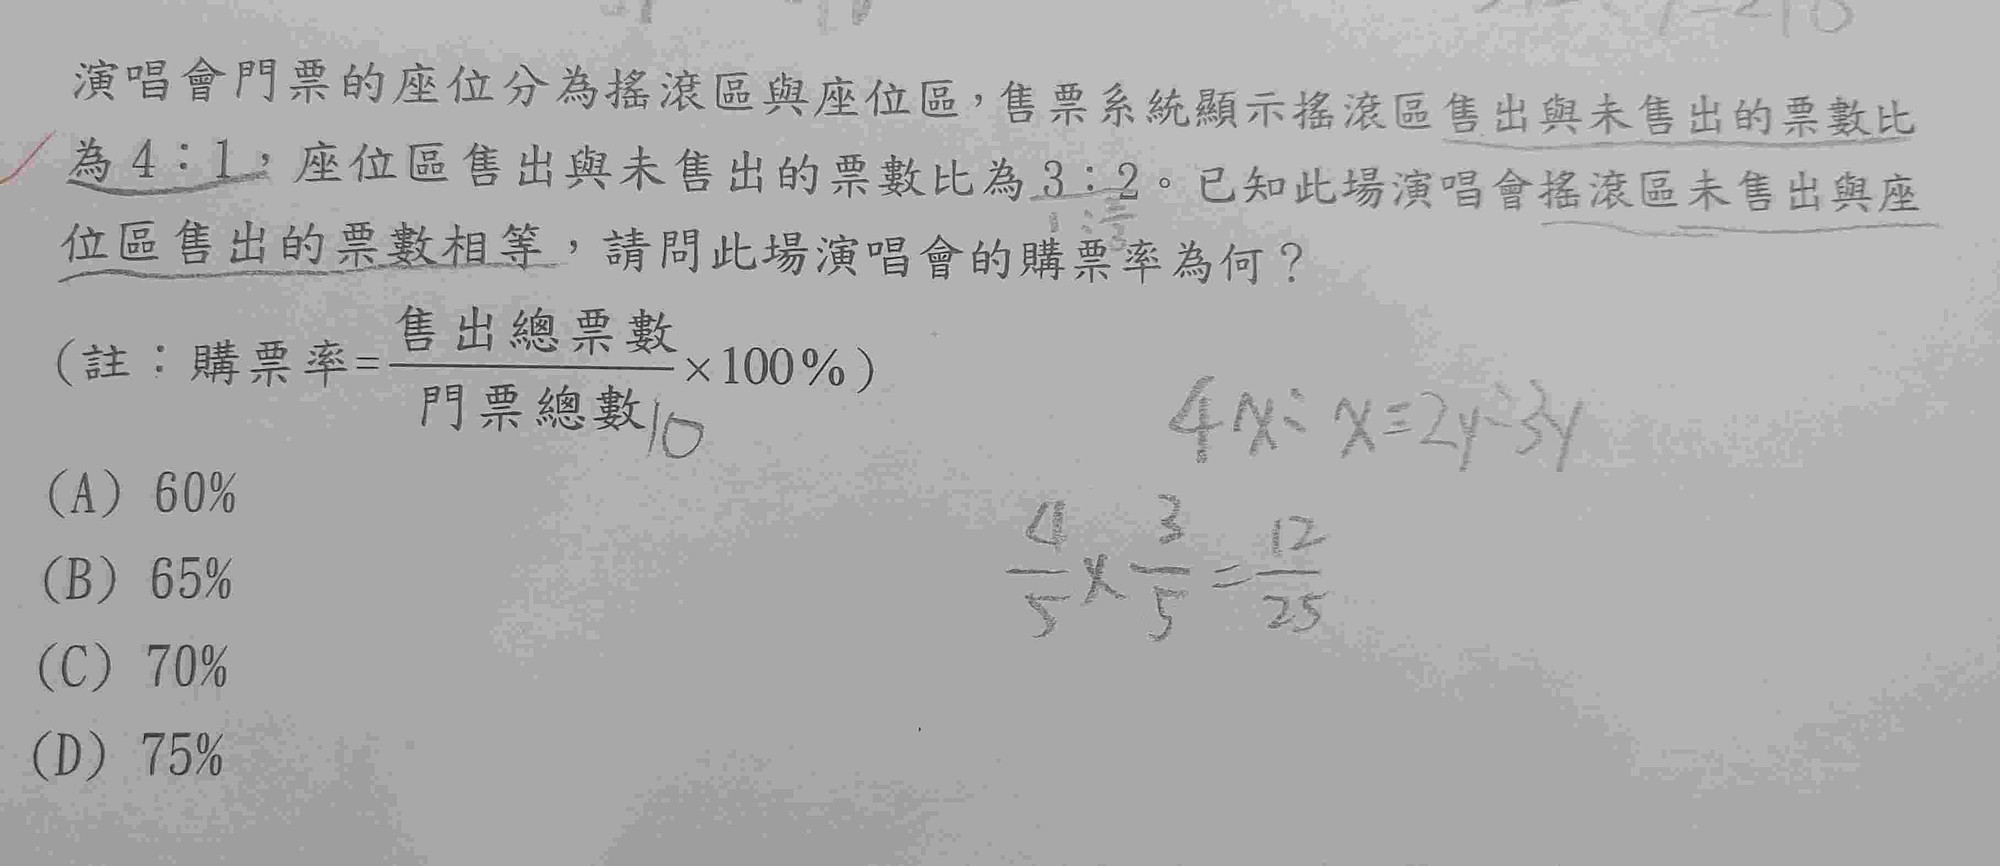 演唱會門票的座位分為搖滾區與座位區，售票系統顯示搖滾區售出與未售出的票數比
為4：1，座位區售出與未售出的票數比為3：2。已知此場演唱會搖滾區未售出與座
位區售出的票數相等，請問此場演唱會的購票率為何？
（註：購票率=售出總票數/門票總數×100%）
10
4x:x=2y:3y
(A) 60%
4/5×3/5=12/25
(B) 65%
(C) 70%
(D) 75%